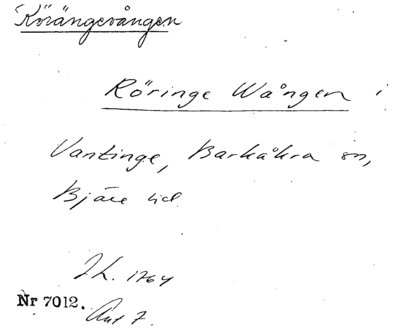 Rörängsvången
Röringe Wången i
Vantinge, Barkåkra sn,
Bjäre hd
J.L. 1764
Nr 7012.
Akt 7.